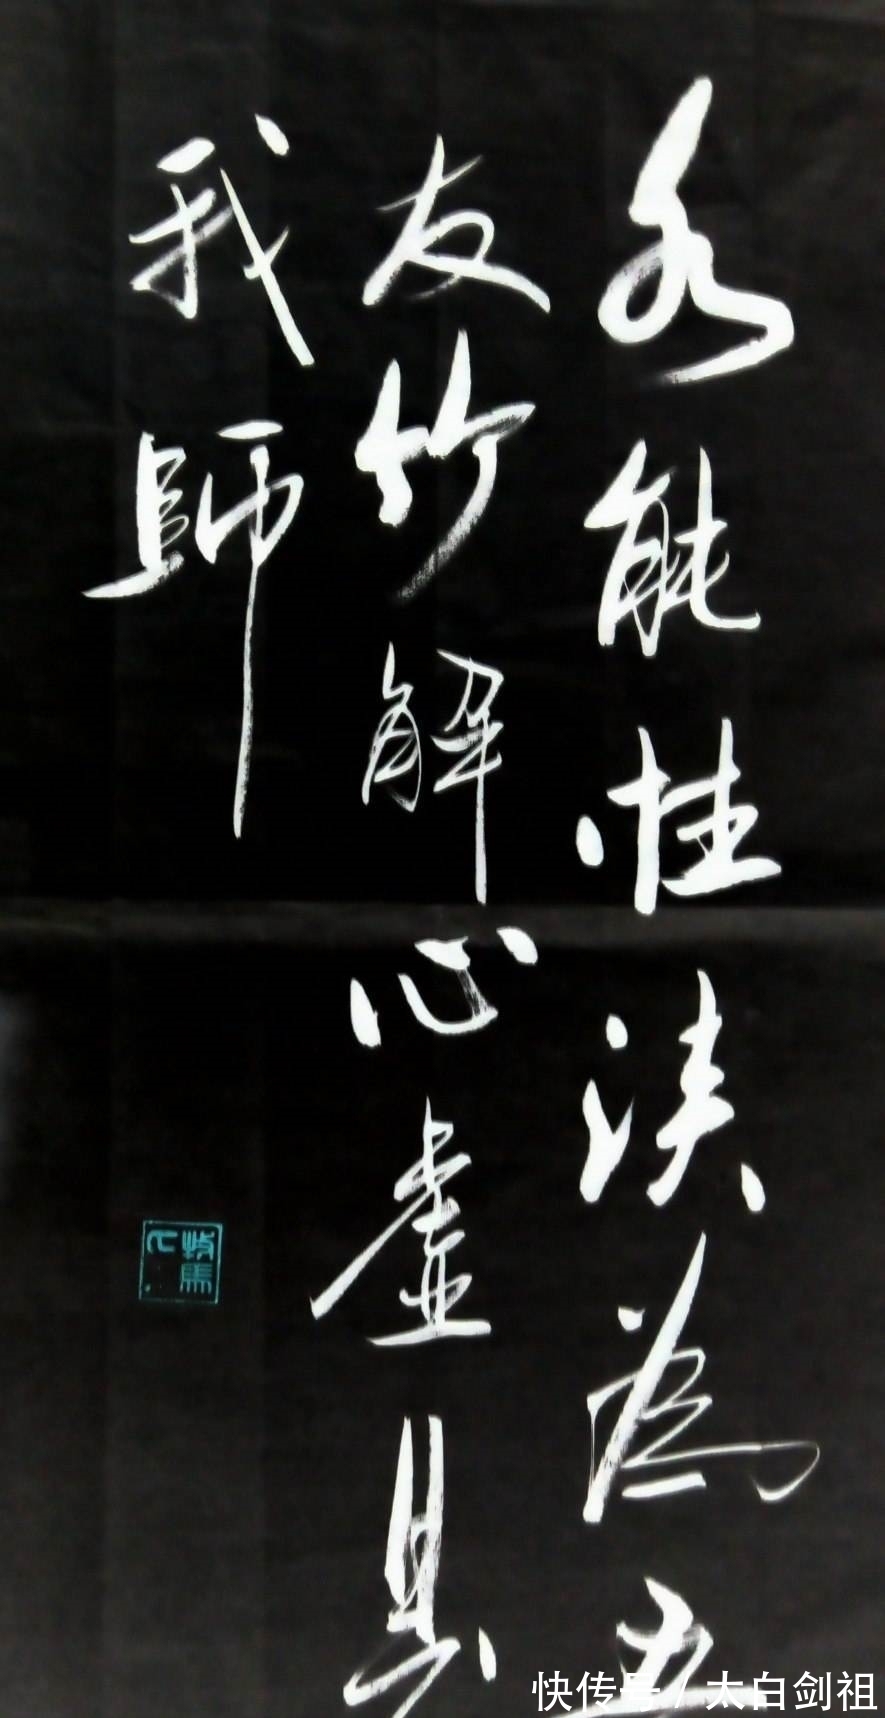 水能性淡為吾
友竹解心虛
我師
牧馬人
快传号 / 太白剑祖